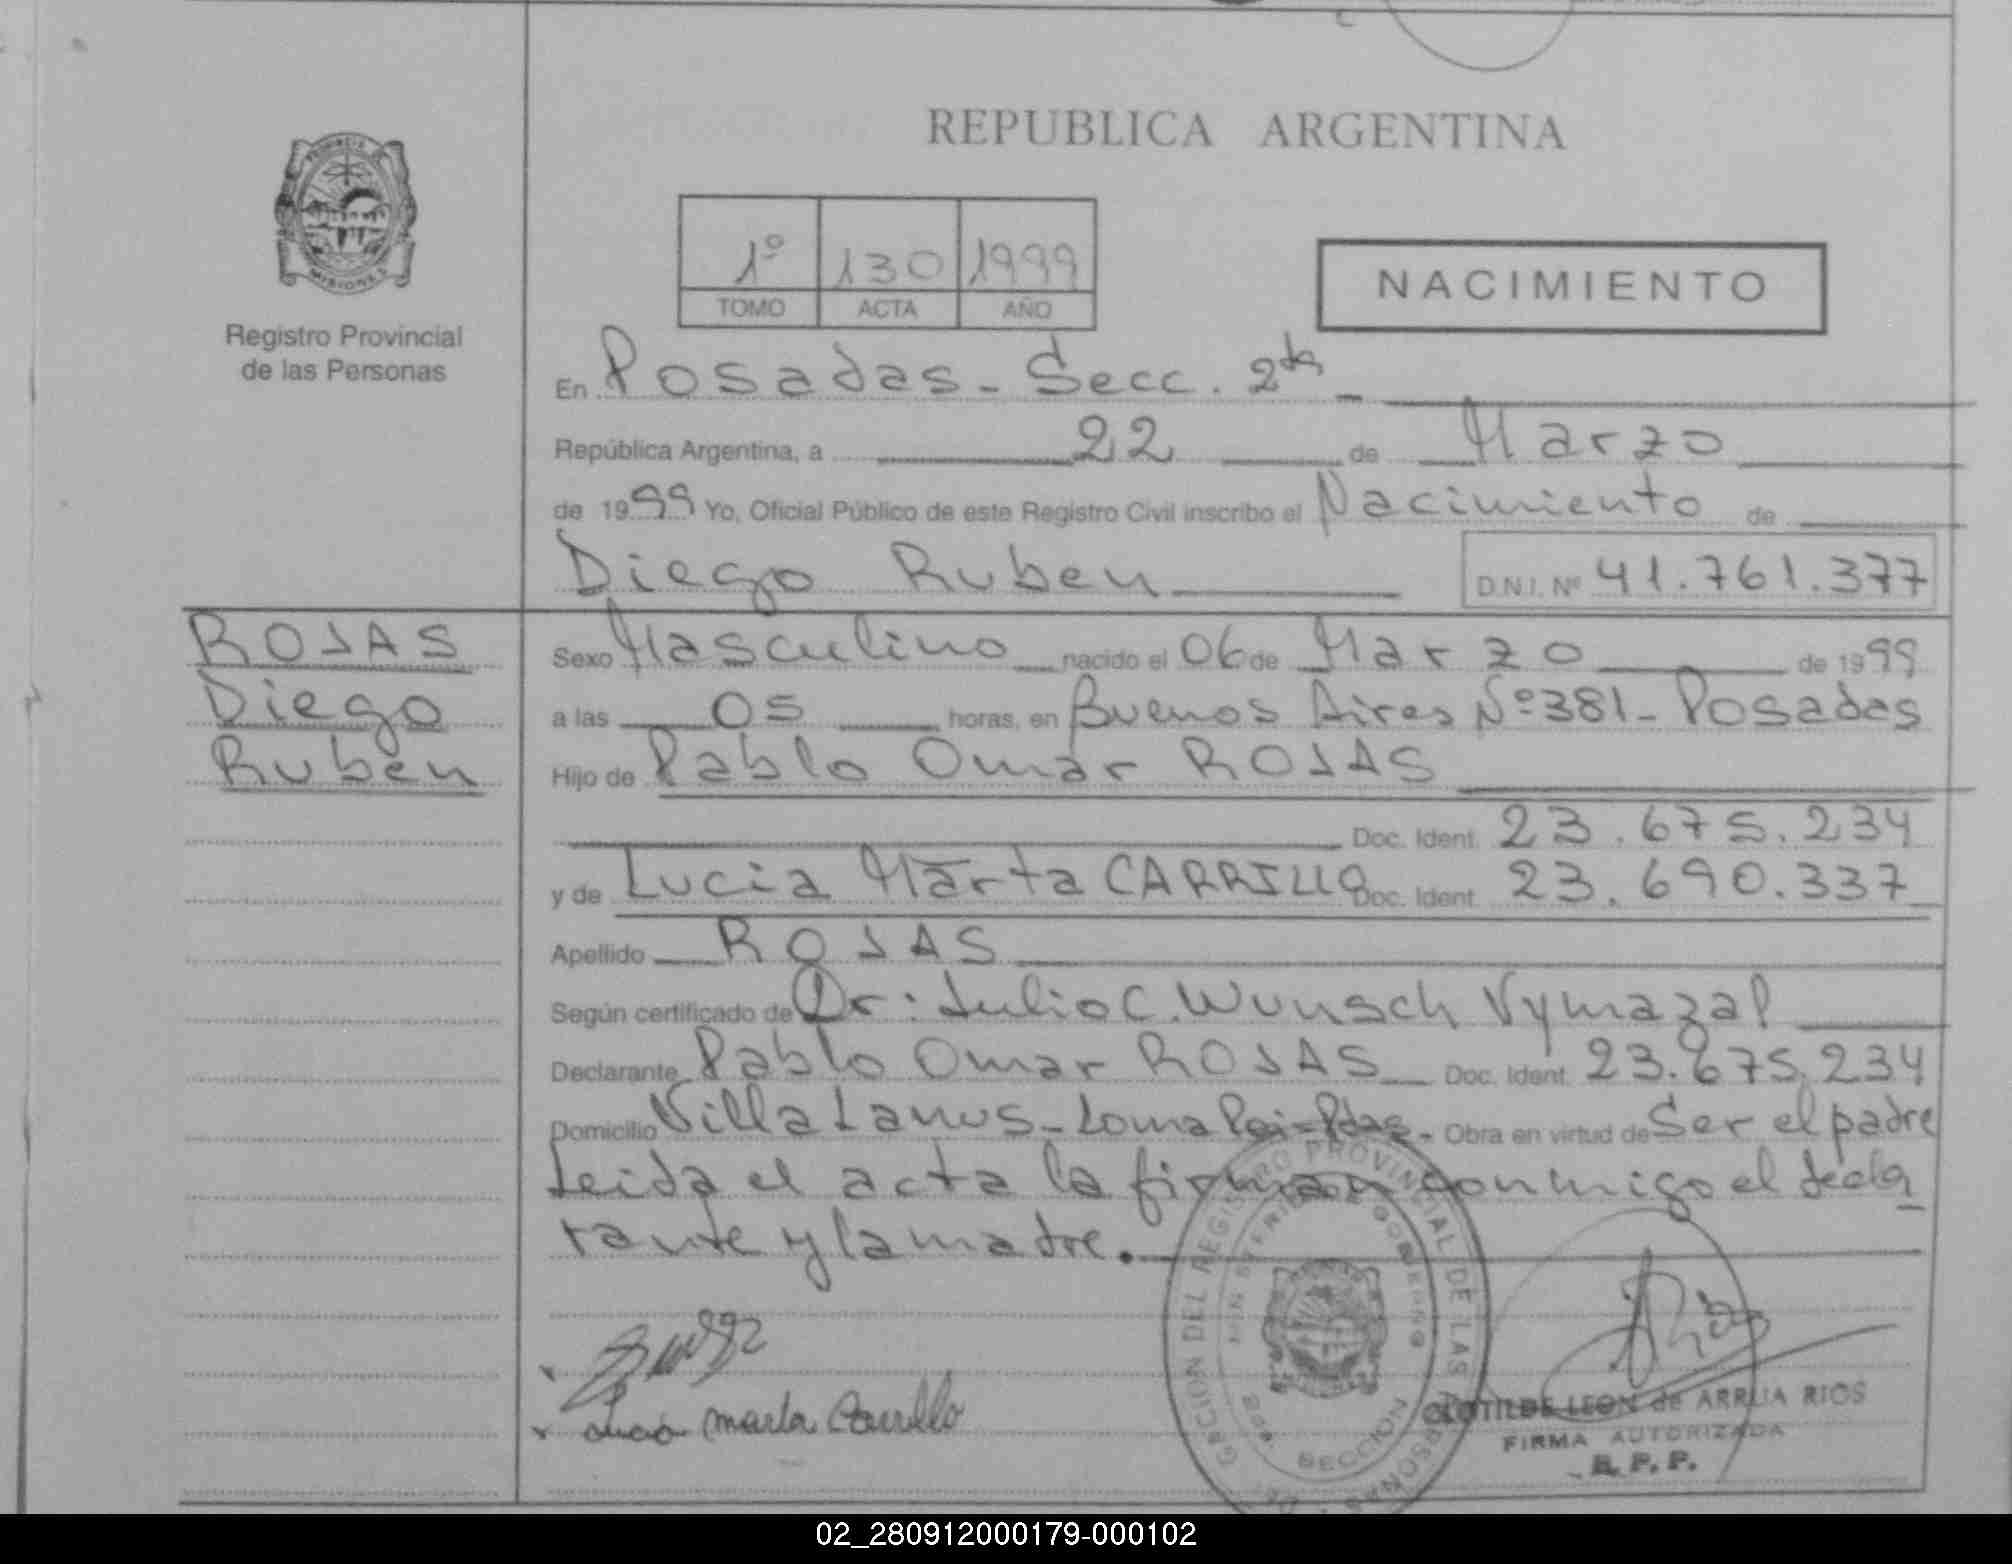 REPUBLICA ARGENTINA
PROVINCIA DE
MISIONES
Registro Provincial
de las Personas
1º 130 1999
TOMO ACTA AÑO
NACIMIENTO
En Posadas - Secc. 2da
República Argentina, a 22 de Marzo
de 1999 Yo, Oficial Público de este Registro Civil inscribo el Nacimiento de
Diego Ruben D.N.I. Nº 41.761.377
ROJAS
Diego
Ruben
Sexo Masculino nacido el 06 de Marzo de 1999
a las 05 horas, en Buenos Aires Nº 381 - Posadas
Hijo de Pablo Omar ROJAS
Doc. Ident. 23.675.234
y de Lucia Marta CARRILLO Doc. Ident. 23.690.337
Apellido ROJAS
Según certificado de Dr: Julio C. Wunsch Vymazal
Declarante Pablo Omar ROJAS Doc. Ident. 23.675.234
Domicilio Villa Lanus - Loma Poi - Pdas. Obra en virtud de Ser el padre
Leida el acta la firman conmigo el decla
rante y la madre.
Lucia Marta Carrillo
DEL REGISTRO PROVINCIAL DE LAS PERSONAS
MINISTERIO DE GOBIERNO
SECCION
CLOTILDE LEON de ARRUA RIOS
FIRMA AUTORIZADA
R. P. P.
02_280912000179-000102